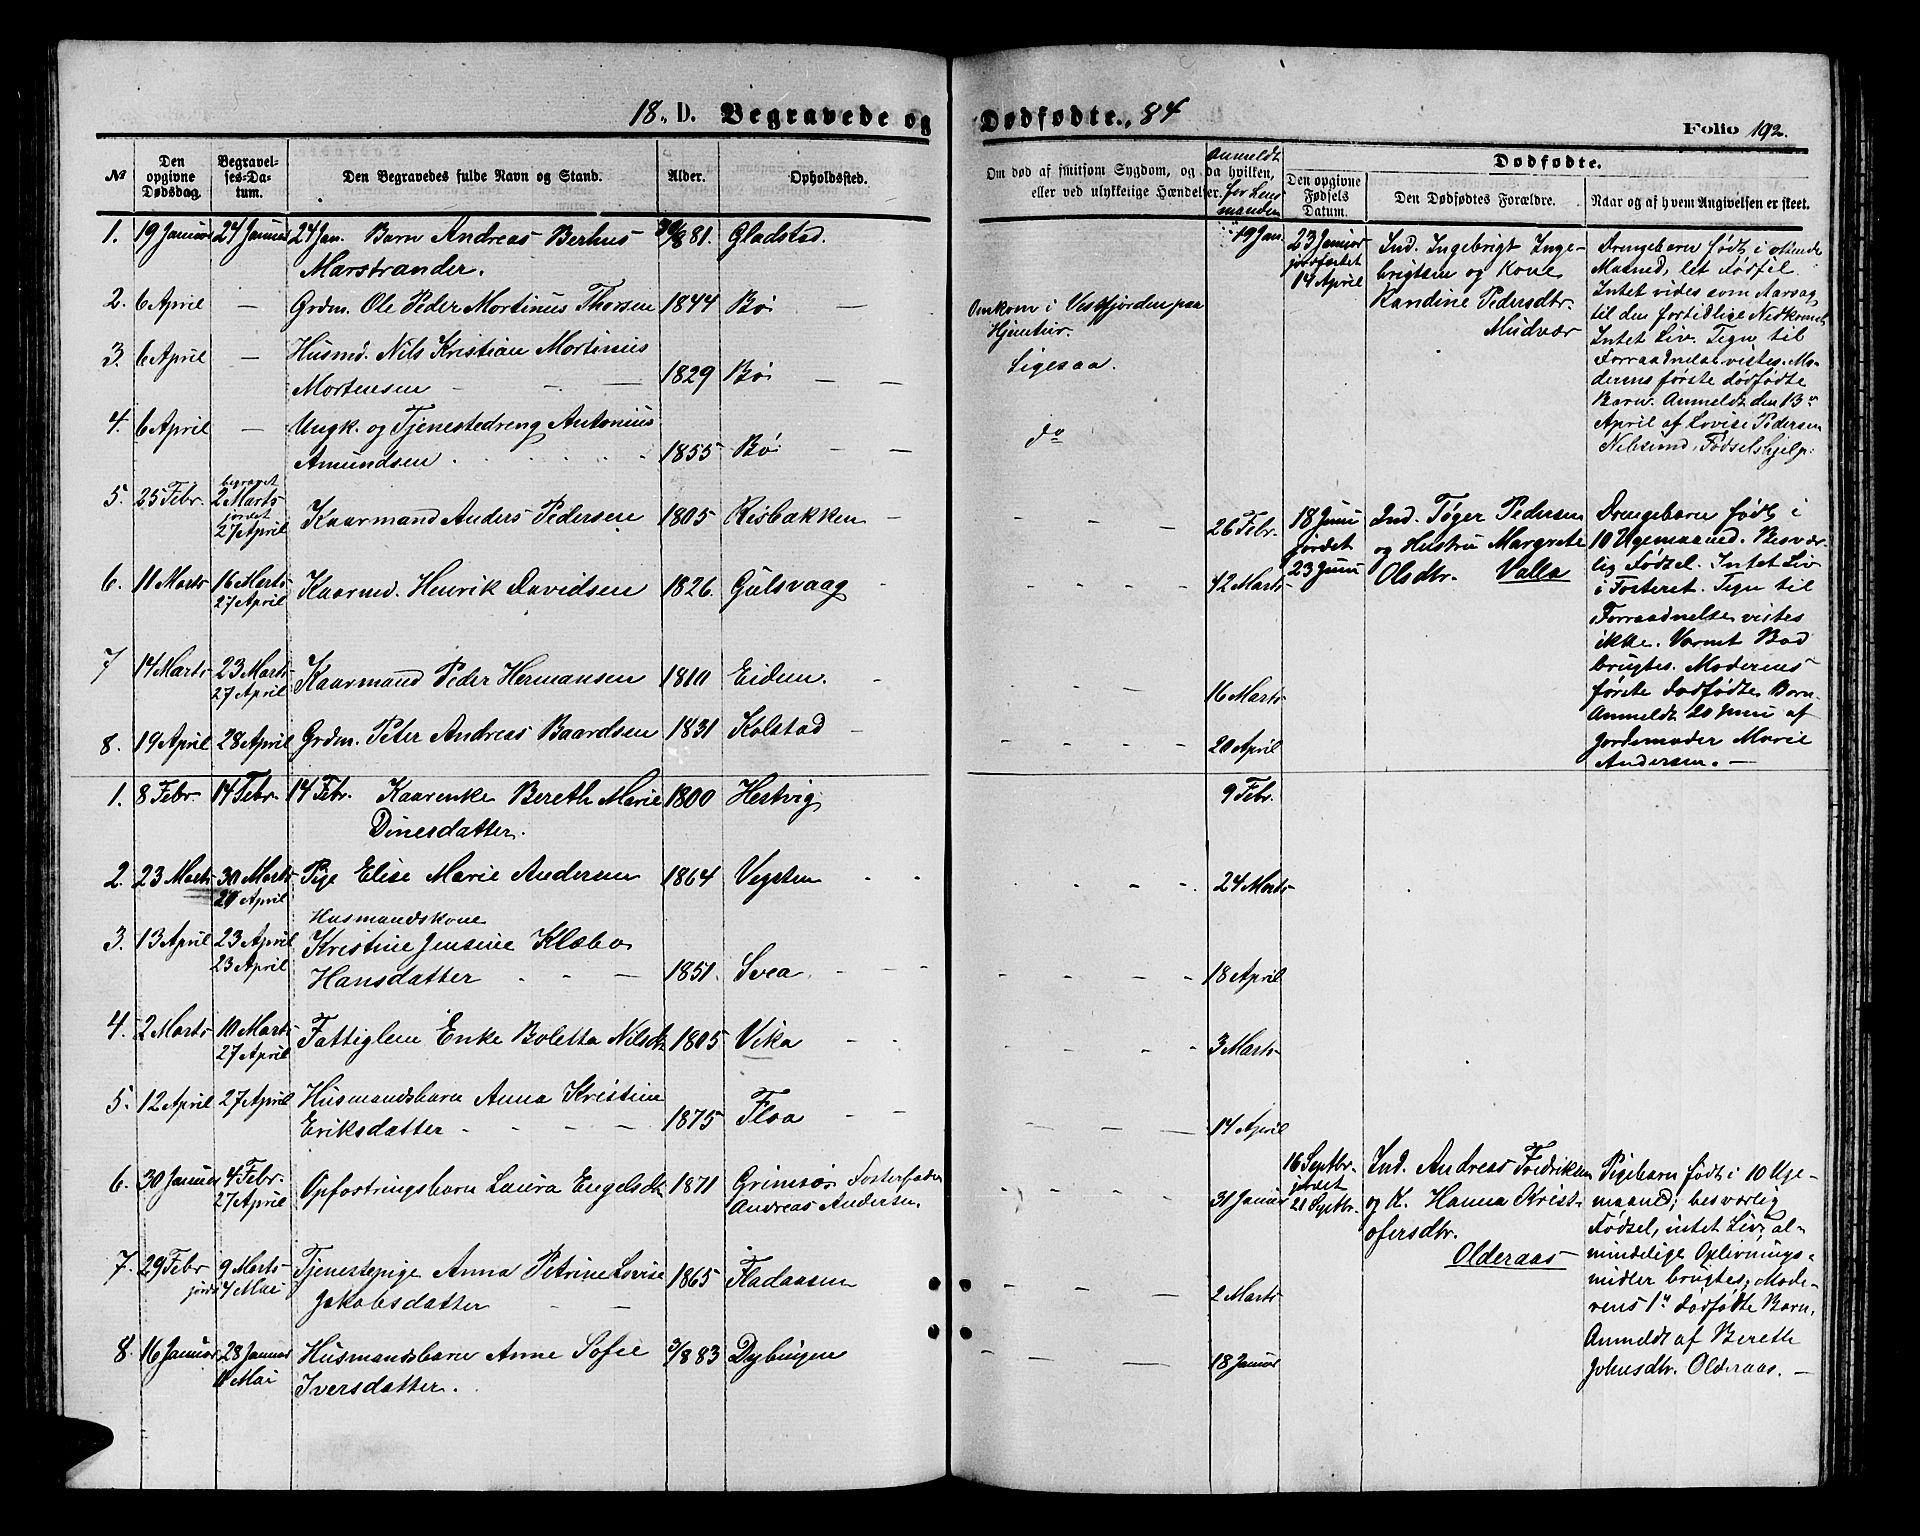 18. D. Begravede og Dødfødte., 84
Folio 192.
No
Den opgivne Dødsdag.
Begravelses-Datum.
Den Begravedes fulde Navn og Stand.
Alder.
Opholdssted.
Om død af smitsom Sygdom, og da hvilken,
eller ved ulykkelige Hændelser.
Anmeldt for Lensmanden
Dødfødte.
Den opgivne Fødsels Datum.
Den Dødfødtes Forældre.
Naar og af hvem Angivelsen er skeet.
1. 19 Januar 24 Januar 24 Jan. Barn Andreas Berhus 81. Gladstad. 19 Jan.
Marstrander.
2. 6 April — Grdm. Ole Peder Mortinus Thorsen 1844 Bø — Omkom i Vestfjorden paa
Hjemtur.
3. 6 April — Husmd. Nils Kristian Mortinus
Mortensen — 1829 Bø — — Ligesaa.
4. 6 April — Ungk. og Tjenestedreng Antonius
Amundsen 1855 Bø — — do
5. 25 Febr. begravet 2 Marts jordet 27 April Kaarmand Anders Pedersen 1805 Risbakken — 26 Febr.
6. 11 Marts 16 Marts 27 April Kaarmd. Henrik Davidsen 1826. Gulsvaag 12 Marts
7 14 Marts 23 Marts 27 April Kaarmand Peder Hermansen 1810 Eidem. 16 Marts
8. 19 April 28 April Grdm. Peter Andreas Baardsen 1831 Kolstad — 20 April
1. 8 Febr. 14 Febr. 14 Febr. Kaarenke Bereth Marie 1800 Hestvig 9 Febr.
Dinesdatter.
2. 23 Marts 30 Marts April Pige Elise Marie Andersen 1864 Vegsten 24 Marts
3. 13 April 23 April 23 April Husmandskone
Kristine Jensine Klæbo
Hansdatter — 1851. Svea 18 April
4. 2 Marts 10 Marts 27 April Fattiglem Enke Boletta Nilsdt 1805 Vika 3 Marts
5. 12 April 27 April Husmandsbarn Anna Kristine
Eriksdatter 1875 Floa 14 April
6. 30 Januar 4 Febr. 27 April Opfostringsbarn Laura Engelsdt 1871 Grimsø Fosterfader
Andreas Andersen. 31 Januar
7. 29 Febr 9 Marts jordet 4 Mai Tjenestepige Anna Petrine Lovise 1865 Fladaasen
Jakobsdatter 2 Marts
8. 16 Januar 28 Januar Mai Husmandsbarn Anne Sofie 3/8 83 Dybingen
Iversdatter. 18 Januar
23 Januar
jordfæstet
14 April
Ind. Ingebrigt Inge-
brigtsen og Kone
Kandine Pedersdtr.
Mudvær
Drengebarn født i ottende
Maaned, let Fødsel.
Intet vides som Aarsag
til den fortidlige Nedkomst
Intet Liv. Tegn til
Forraadnelse vistes. Mo-
derens første dødfødte
Barn. Anmeldt den 13de
April af Lovise Pedersen
Nilssund, Fødselshjelp.
18 Juni
jordet
23 Juni
Ind. Tøger Pedersen
og Hustru Margrete
Olsdtr. Valla
Drengebarn født i
10 Ugemaaned. Besvær-
lig Fødsel. Intet Liv
i Fosteret. Tegn til
Forraadnelse vistes
ikke. Varmt Bad
brugtes. Moderens
første dødfødte Barn.
Anmeldt 20 Juni af
Jordemoder Marie
Andersen. —
16 Septbr.
jordet
21 Septbr.
Ind. Andreas Fredriksen
og K. Hanna Krist-
ofersdtr.
Olderaas
Pigebarn født i 10 Uge-
maaned; besværlig
Fødsel, intet Liv, al-
mindelige Oplivnings-
midler brugtes, Mode-
rens 1ste dødfødte Barn.
Anmeldt af Bereth
Johnsdtr. Olderaas. —